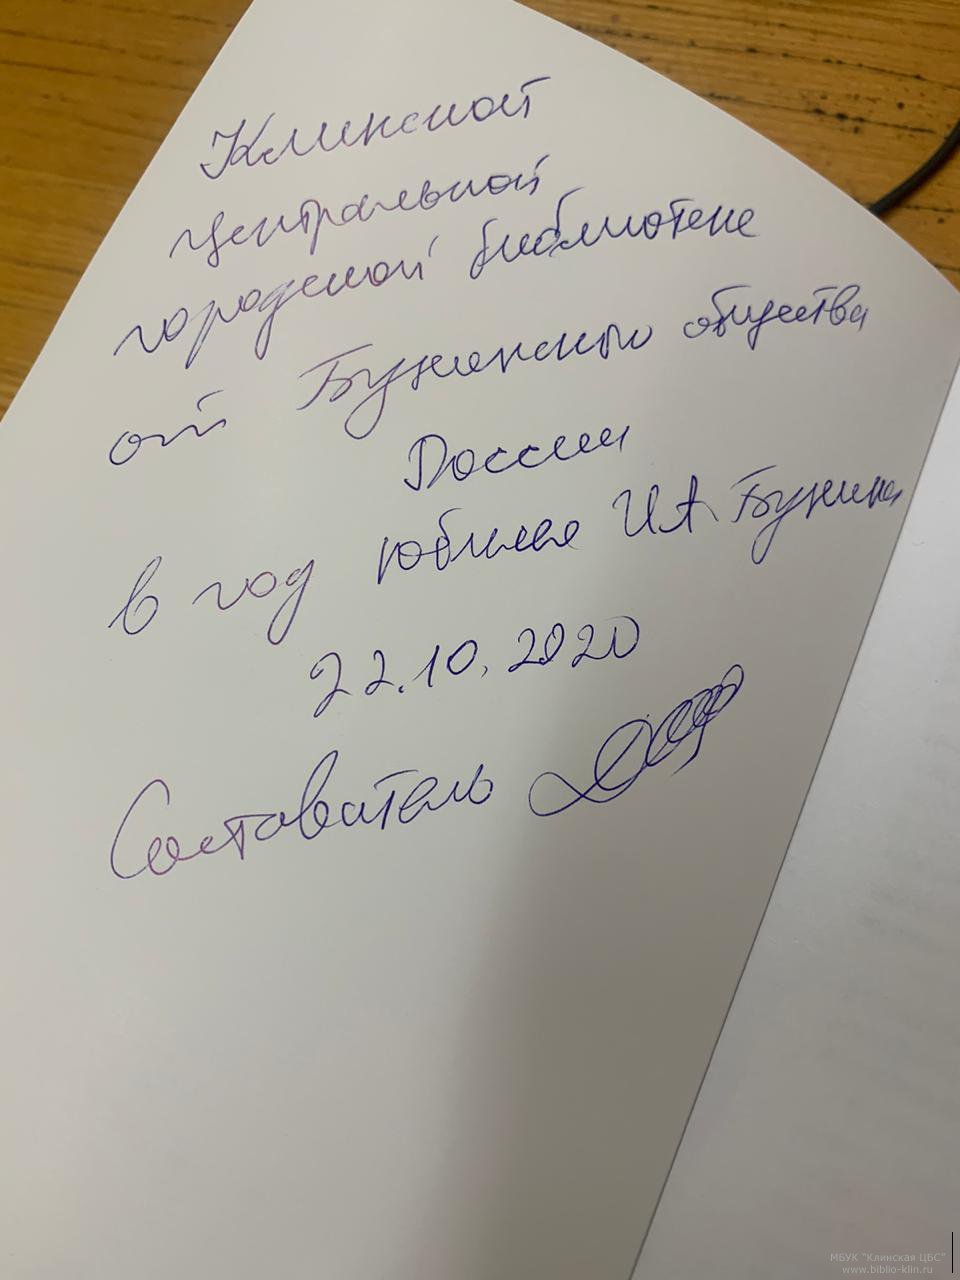 Клинской
центральной
городской библиотеке
от Бунинского общества
России
в год юбилея И.А. Бунина
22.10.2020
Составитель
МБУК "Клинская ЦБС"
www.biblio-klin.ru